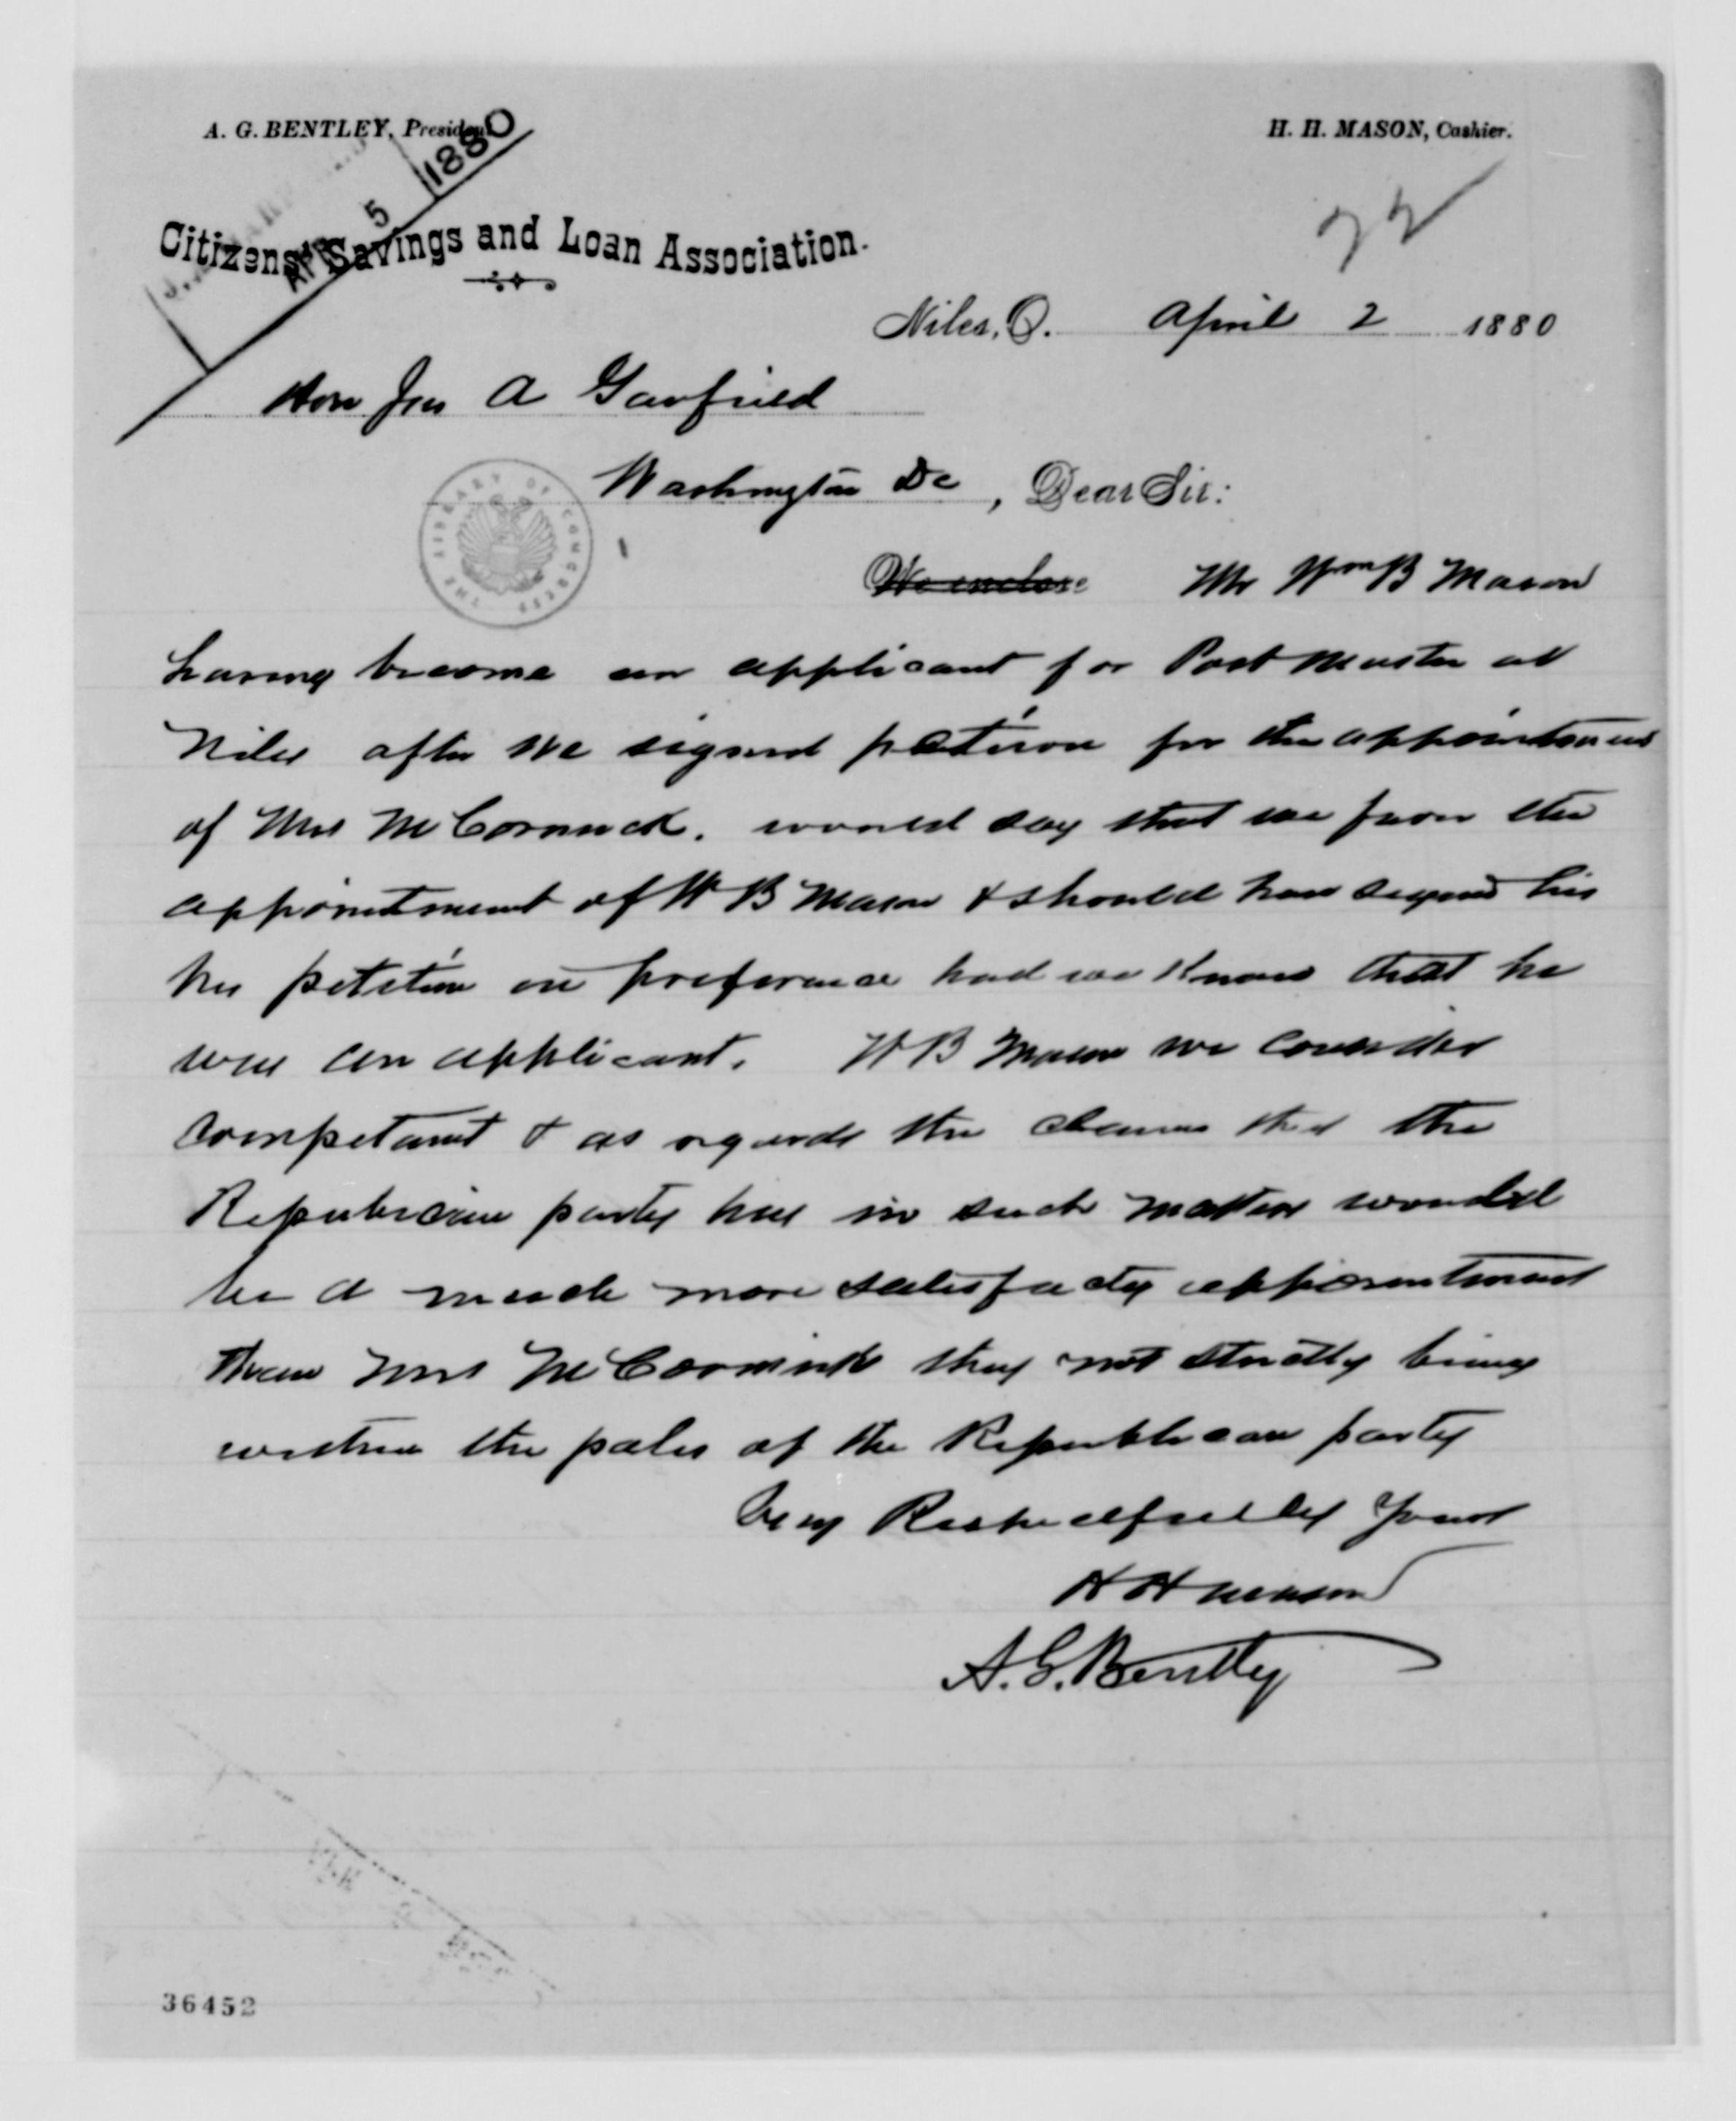 A. G. BENTLEY, President.
H. H. MASON, Cashier.
APR 5 1880
Citizens' Savings and Loan Association.
22
Niles, O. April 2 1880
Hon Jas A Garfield
Washington Dc, Dear Sir:
THE LIBRARY OF CONGRESS
We enclose Mr Wm B Mason
having become an applicant for Post Master at
Niles after we signed petition for the appointment
of Mrs McCormick. would say that we favor the
appointment of W B Mason & should have signed his
his petition in preference had we known that he
was an applicant. W B Mason we consider
competant & as regards the claims that the
Republican party has in such matters would
be a much more satisfacty appointment
than Mrs McCormick they not strictly being
within the pales of the Republican party
Very Respectfully Yours
H H Mason
A. G. Bentley
36452